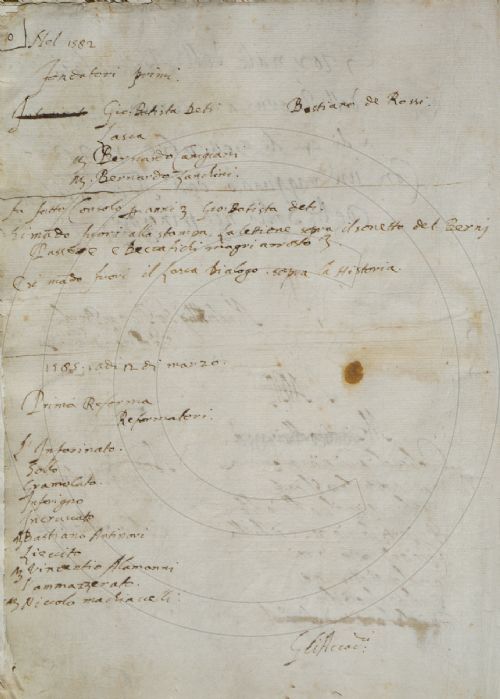 Nel 1582
fondatori primi.
Gio: Batista Deti Bastiano de Rossi.
Lasca
M Bernardo Canigiani
M. Bernardo Zanchini.
fu fatto Consolo p anni 3 Gio: Batista deti
Si mādò fuori alla stampa. La letione sopra il sonetto del Berni
Passere e Beccafichi magri arrosto
E si mādò fuori il Lasca Dialogo. sopra la Historia.
1585. adi 12 di marzo.
Prima Reforma
Reformatori.
L'Infarinato.
Sollo
Gramolato.
Inferigno
Incruscato
M Bastiano Antinori
Lievito
M Vincentio Alamanni
L'ammazzerat.
M Niccolo machiavelli.
Gli Accad.ci